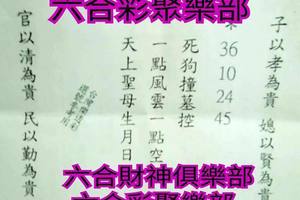 六合彩聚樂部
子以孝為貴 媳以賢為貴
36 10 24 45
死狗撞墓控
一點風雲一點空
天上聖母生月日
官以清為貴 民以勤為貴
六合財神俱樂部
六合彩聚樂部